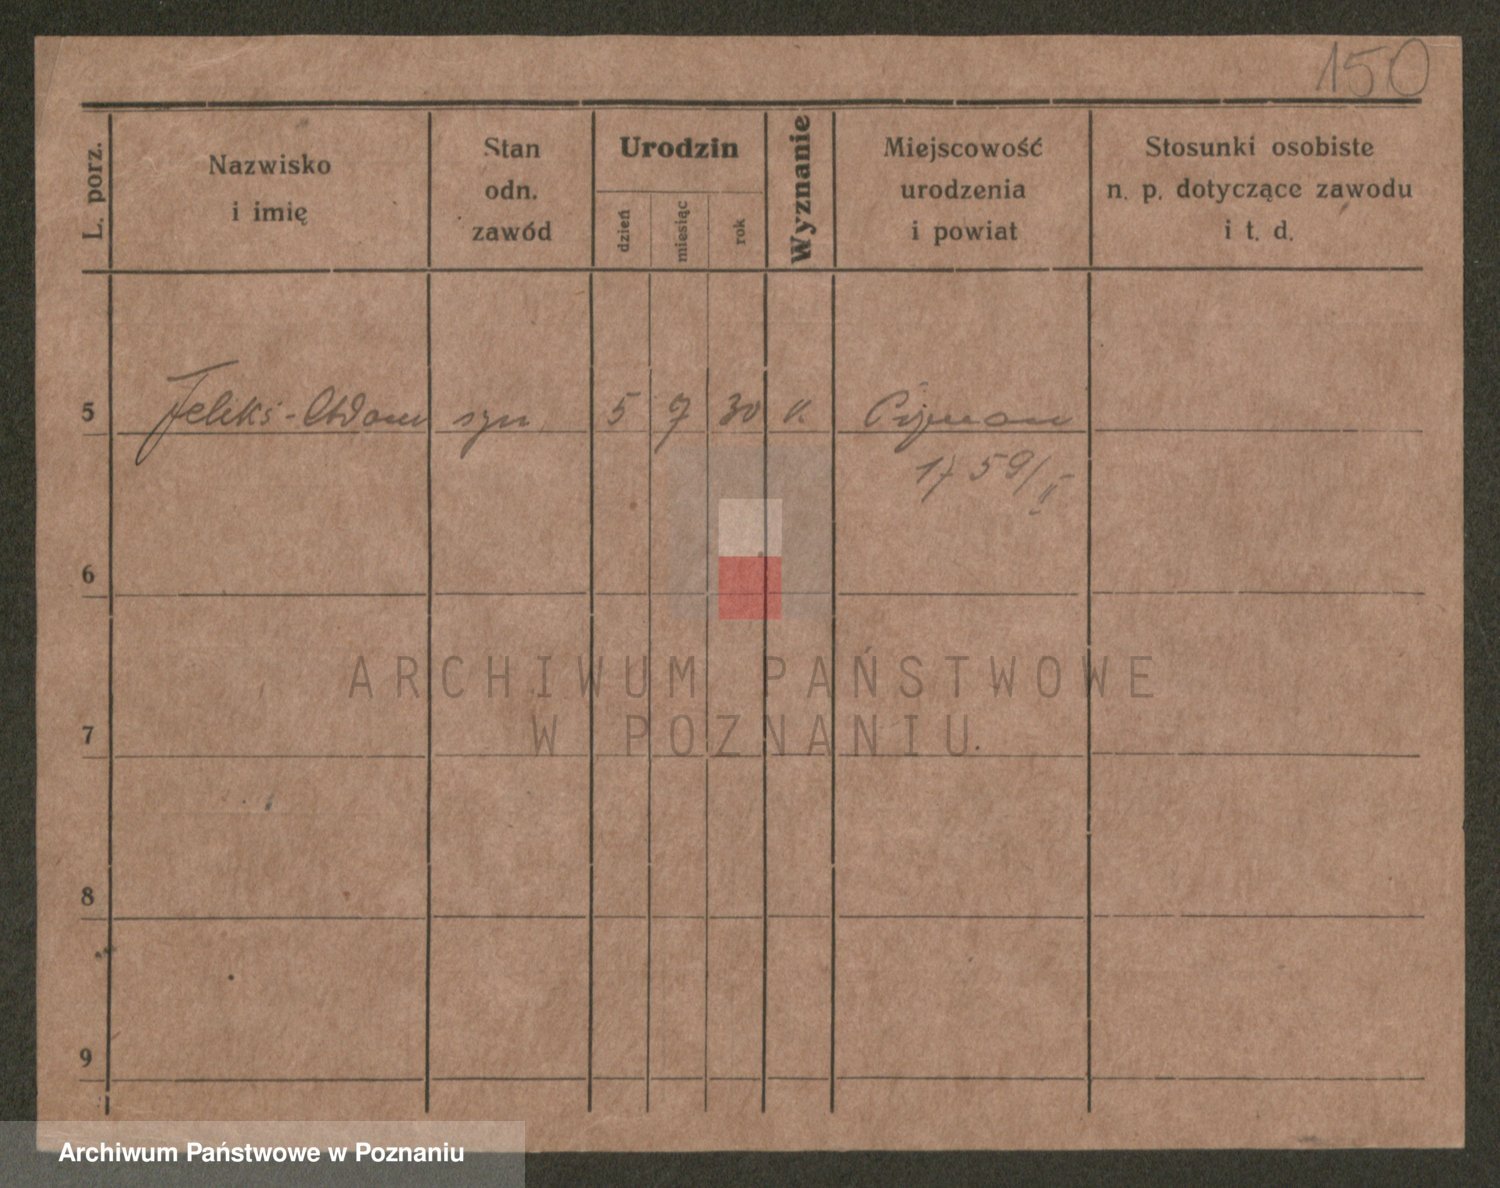 150
L. porz.
Nazwisko
i imię
Stan
odn.
zawód
Urodzin
dzień
miesiąc
rok
Wyznanie
Miejscowość
urodzenia
i powiat
Stosunki osobiste
n. p. dotyczące zawodu
i t. d.
5 Feliks - Adam syn 5 7 30
17 59/II
6
7
8
9
ARCHIWUM PAŃSTWOWE
W POZNANIU
Archiwum Państwowe w Poznaniu